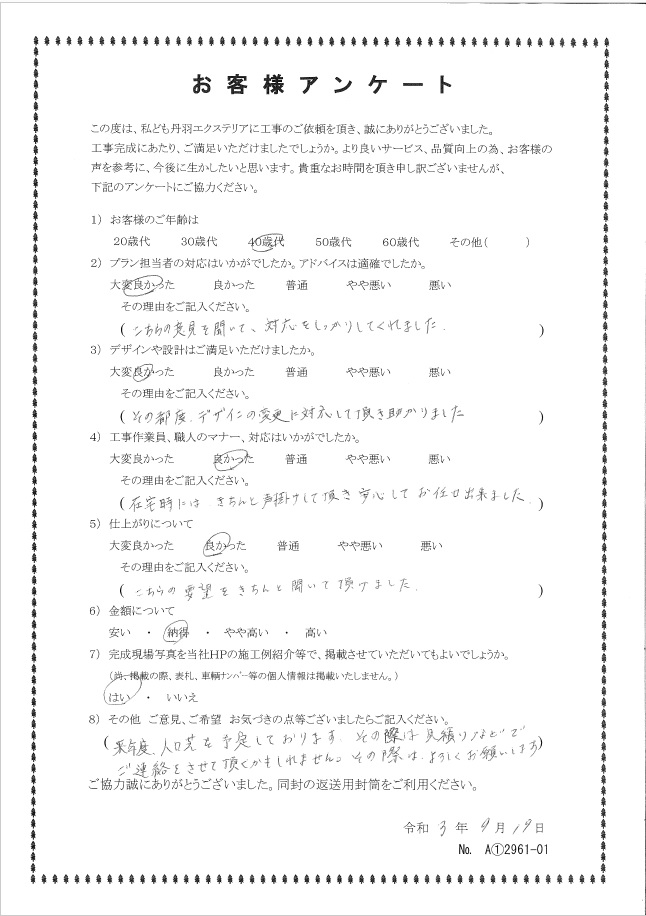 お客様アンケート
この度は、私ども丹羽エクステリアに工事のご依頼を頂き、誠にありがとうございました。
工事完成にあたり、ご満足いただけましたでしょうか。より良いサービス、品質向上の為、お客様の
声を参考に、今後に生かしたいと思います。貴重なお時間を頂き申し訳ございませんが、
下記のアンケートにご協力ください。
1) お客様のご年齢は
20歳代 30歳代 40歳代 50歳代 60歳代 その他( )
2) プラン担当者の対応はいかがでしたか。アドバイスは適確でしたか。
大変良かった 良かった 普通 やや悪い 悪い
その理由をご記入ください。
(こちらの意見を聞いて、対応をしっかりしてくれました。)
3) デザインや設計はご満足いただけましたか。
大変良かった 良かった 普通 やや悪い 悪い
その理由をご記入ください。
(その都度、デザインの変更に対応して頂き助かりました)
4) 工事作業員、職人のマナー、対応はいかがでしたか。
大変良かった 良かった 普通 やや悪い 悪い
その理由をご記入ください。
(在宅時には きちんと声掛けして頂き安心してお任せ出来ました。)
5) 仕上がりについて
大変良かった 良かった 普通 やや悪い 悪い
その理由をご記入ください。
(こちらの要望をきちんと聞いて頂けました。)
6) 金額について
安い ・ 納得 ・ やや高い ・ 高い
7) 完成現場写真を当社HPの施工例紹介等で、掲載させていただいてもよいでしょうか。
(尚、掲載の際、表札、車輌ナンバー等の個人情報は掲載いたしません。)
はい ・ いいえ
8) その他 ご意見、ご希望 お気づきの点等ございましたらご記入ください。
(来年度、人口芝を予定しております。その際は見積りなどで
ご連絡をさせて頂くかもしれません。その際は、よろしくお願いします)
ご協力誠にありがとうございました。同封の返送用封筒をご利用ください。
令和 3 年 9 月 19 日
No. A①2961-01